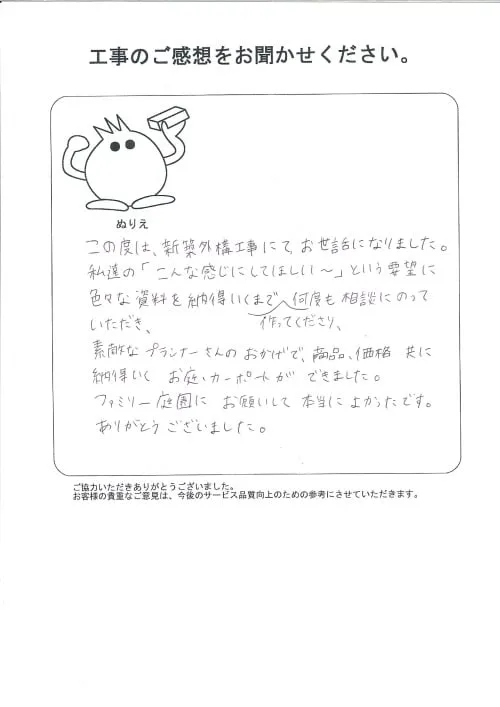 工事のご感想をお聞かせください。
ぬりえ
この度は、新築外構工事にて、お世話になりました。
私達の「こんな感じにしてほしい〜」という要望に
色々な資料を納得いくまで 何度も相談にのって
作ってくださり、
いただき、
素敵なプランナーさんのおかげで、商品、価格 共に
納得いく お庭・カーポートが できました。
ファミリー庭園に お願いして 本当に よかったです。
ありがとう ございました。
ご協力いただきありがとうございました。
お客様の貴重なご意見は、今後のサービス品質向上のための参考にさせていただきます。